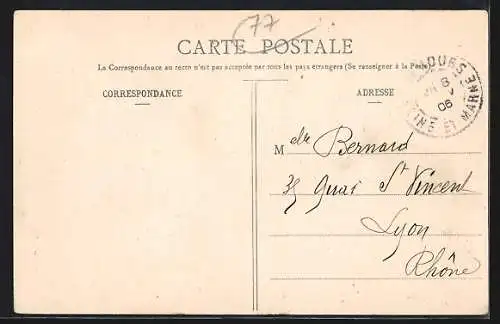 77
CARTE POSTALE
La Correspondance au recto n'est pas acceptée par tous les pays étrangers (Se renseigner à la Poste)
CORRESPONDANCE
ADRESSE
8
06
SEINE ET MARNE
Mdlle Bernard
35 Quai St Vincent
Lyon
Rhône